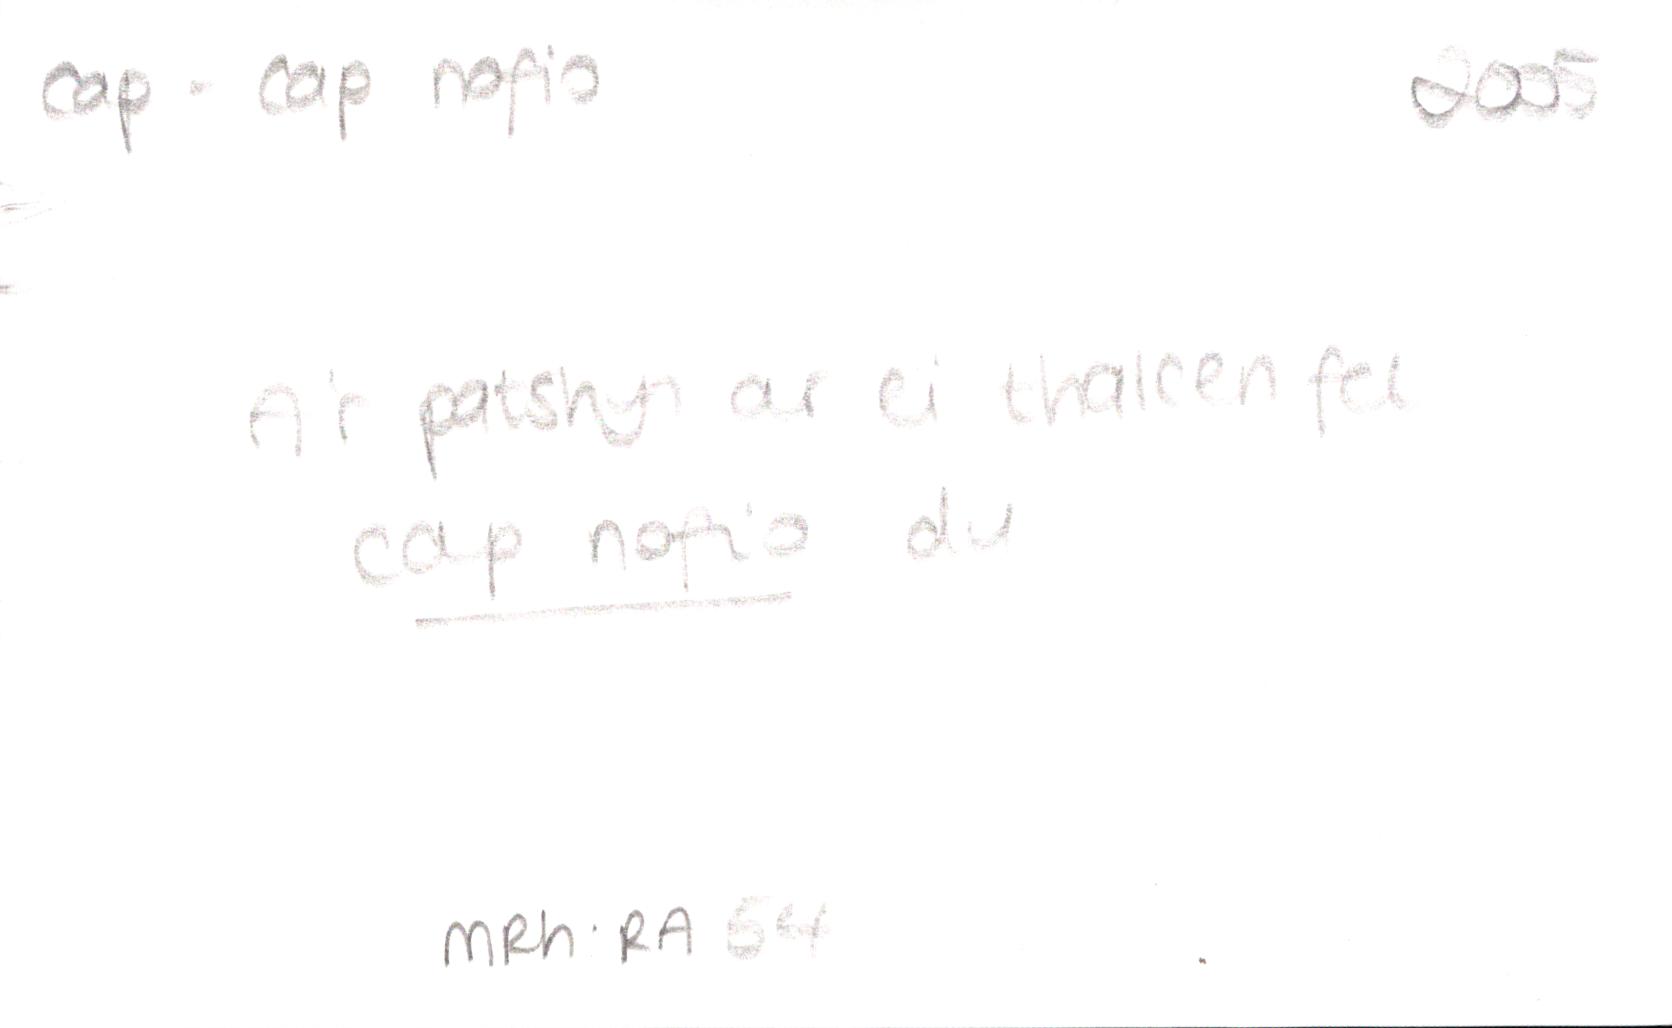 cap - cap nofio 2005
A'r patshyn ar ei thalcen fel
cap nofio du
MRh: RA